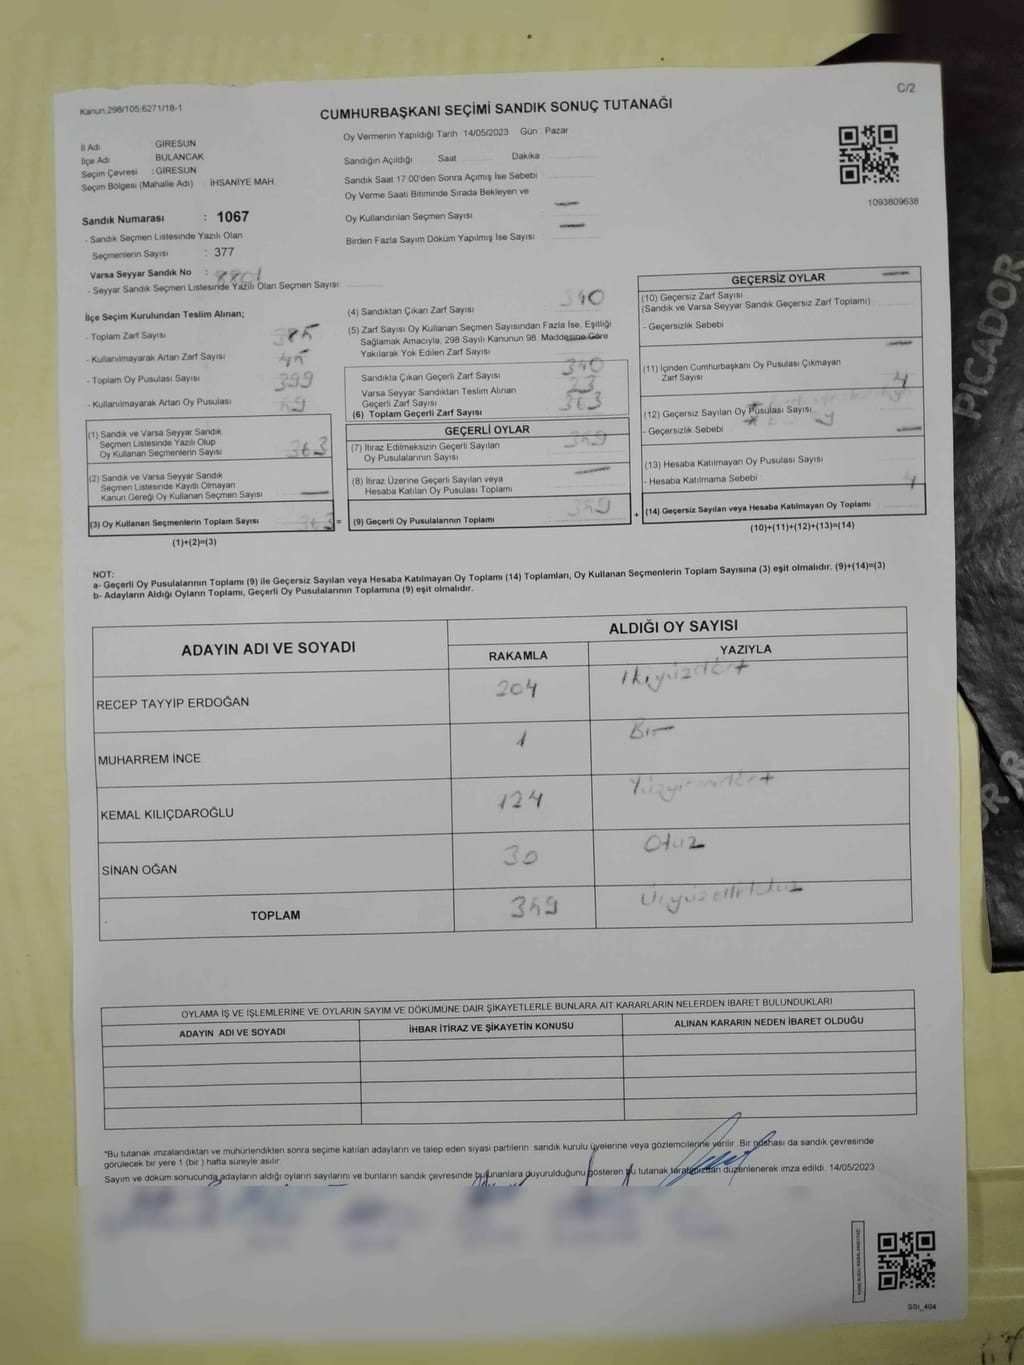 Kanun.298/105.6271/18-1
C/2
CUMHURBAŞKANI SEÇİMİ SANDIK SONUÇ TUTANAĞI
Oy Vermenin Yapıldığı Tarih 14/05/2023 Gün : Pazar
İl Adı GİRESUN
İlçe Adı BULANCAK
Seçim Çevresi : GİRESUN
Seçim Bölgesi (Mahalle Adı) İHSANİYE MAH.
Sandık Numarası : 1067
- Sandık Seçmen Listesinde Yazılı Olan
Seçmenlerin Sayısı : 377
Varsa Seyyar Sandık No :
- Seyyar Sandık Seçmen Listesinde Yazılı Olan Seçmen Sayısı
Sandığın Açıldığı Saat Dakika
Sandık Saat 17:00'den Sonra Açımış İse Sebebi
Oy Verme Saati Bitiminde Sırada Bekleyen ve
Oy Kullandırılan Seçmen Sayısı
Birden Fazla Sayım Döküm Yapılmış İse Sayısı
1093809638
İlçe Seçim Kurulundan Teslim Alınan;
- Toplam Zarf Sayısı
- Kullanılmayarak Artan Zarf Sayısı
- Toplam Oy Pusulası Sayısı 399
- Kullanılmayarak Artan Oy Pusulası
(1) Sandık ve Varsa Seyyar Sandık
Seçmen Listesinde Yazılı Olup
Oy Kullanan Seçmenlerin Sayısı 363
(2) Sandık ve Varsa Seyyar Sandık
Seçmen Listesinde Kayıtlı Olmayan
Kanun Gereği Oy Kullanan Seçmen Sayısı
(3) Oy Kullanan Seçmenlerin Toplam Sayısı 363 =
(1)+(2)=(3)
(4) Sandıktan Çıkan Zarf Sayısı 340
(5) Zarf Sayısı Oy Kullanan Seçmen Sayısından Fazla İse, Eşitliği
Sağlamak Amacıyla; 298 Sayılı Kanunun 98. Maddesine Göre
Yakılarak Yok Edilen Zarf Sayısı
Sandıkta Çıkan Geçerli Zarf Sayısı 340
Varsa Seyyar Sandıktan Teslim Alınan
Geçerli Zarf Sayısı 23
(6) Toplam Geçerli Zarf Sayısı 363
GEÇERLİ OYLAR
(7) İtiraz Edilmeksizin Geçerli Sayılan
Oy Pusulalarının Sayısı 359
(8) İtiraz Üzerine Geçerli Sayılan veya
Hesaba Katılan Oy Pusulası Toplamı
(9) Geçerli Oy Pusulalarının Toplamı 359 +
GEÇERSİZ OYLAR
(10) Geçersiz Zarf Sayısı
(Sandık ve Varsa Seyyar Sandık Geçersiz Zarf Toplamı)
- Geçersizlik Sebebi
(11) İçinden Cumhurbaşkanı Oy Pusulası Çıkmayan
Zarf Sayısı
(12) Geçersiz Sayılan Oy Pusulası Sayısı
- Geçersizlik Sebebi
(13) Hesaba Katılmayan Oy Pusulası Sayısı
- Hesaba Katılmama Sebebi
(14) Geçersiz Sayılan veya Hesaba Katılmayan Oy Toplamı 4
(10)+(11)+(12)+(13)=(14)
NOT:
a- Geçerli Oy Pusulalarının Toplamı (9) ile Geçersiz Sayılan veya Hesaba Katılmayan Oy Toplamı (14) Toplamları, Oy Kullanan Seçmenlerin Toplam Sayısına (3) eşit olmalıdır. (9)+(14)=(3)
b- Adayların Aldığı Oyların Toplamı, Geçerli Oy Pusulalarının Toplamına (9) eşit olmalıdır.
ADAYIN ADI VE SOYADI ALDIĞI OY SAYISI
RAKAMLA YAZIYLA
RECEP TAYYİP ERDOĞAN 204 İkiyüzdört
MUHARREM İNCE 1 Bir
KEMAL KILIÇDAROĞLU 124 Yüzyirmidört
SİNAN OĞAN 30 Otuz
TOPLAM 359 Üçyüzellidokuz
OYLAMA İŞ VE İŞLEMLERİNE VE OYLARIN SAYIM VE DÖKÜMÜNE DAİR ŞİKAYETLERLE BUNLARA AİT KARARLARIN NELERDEN İBARET BULUNDUKLARI
ADAYIN ADI VE SOYADI İHBAR İTİRAZ VE ŞİKAYETİN KONUSU ALINAN KARARIN NEDEN İBARET OLDUĞU
*Bu tutanak imzalandıktan ve mühürlendikten sonra seçime katılan adayların ve talep eden siyasi partilerin sandık kurulu üyelerine veya gözlemcilerine verilir. Bir nüshası da sandık çevresinde
görülecek bir yere 1 (bir) hafta süreyle asılır.
Sayım ve döküm sonucunda adayların aldığı oyların sayılarını ve bunların sandık çevresinde bulunanlara duyurulduğunu gösteren bu tutanak tarafımızdan düzenlenerek imza edildi. 14/05/2023
SSI_404
PICADOR